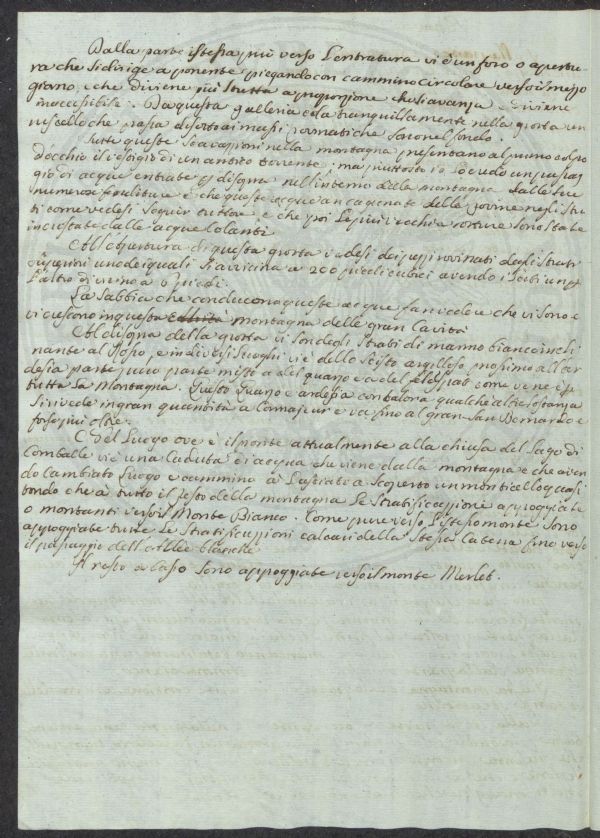 Dalla parte istessa più verso l'entratura vi è un foro o apertu-
ra che si dirige a ponente piegando con cammino circolare verso il mezzo
giorno, e che diviene più stretta a proporzione che si avanza e diviene
inaccessibile. Da questa galleria cola tranquillamente nella grotta un
ruscello che passa di sotto ai massi che sono nel fondo.
Tutte queste scavazioni nella montagna presentano al primo colpo
d'occhio il di un antico torrente. ma piuttosto io lo credo un passag
gio di acque entrate al di sopra nell'interno della montagna dalle sue
numerose fenditure e che queste acque an cagionate delle rovine negli stra
ti come vedesi seguir tuttora, e che poi le più vecchie rotture sono state
incrostate dalle acque colanti.
All'apertura di questa grotta vedesi dei pezzi rovinati degli strati
superiori uno de quali si avvicina a 200 piedi cubici avendo i lati un
l'altro di uno a 6 piedi.
La sabbia che conducono queste acque fan vedere che vi sono e
vi crescono in questa montagna delle gran cavità
Al di sopra della grotta vi son degli strati di marmo bianco incli
nante al rosso, e in diversi luoghi vi è dello scisto argilloso prossimo all'ar
desia parte puro parte misto a del quarzo e a del feldspato come ve ne è per
tutta la montagna. Questo quarzo e ardesia con talora qualche altra sostanza
si rivede in gran quantità a Comajeur e va fino al gran San Bernardo e
forse più oltre.
Nel luogo ove è il ponte attualmente alla chiusa del Lago di
Comballe vi è una caduta di acqua che viene dalla montagna e che aven
do cambiato luogo e cammino à lasciato a scoperto un monticello quasi
tondo che à tutto il resto della montagna le stratificazioni appoggiate
o montanti verso il Monte Bianco. Come pure verso l'istesso monte sono
appoggiate tutte le stratificazioni calcari della stessa catena fino verso
il passaggio dell'allée blanche
Il resto a basso sono appoggiate verso il monte Merlet.